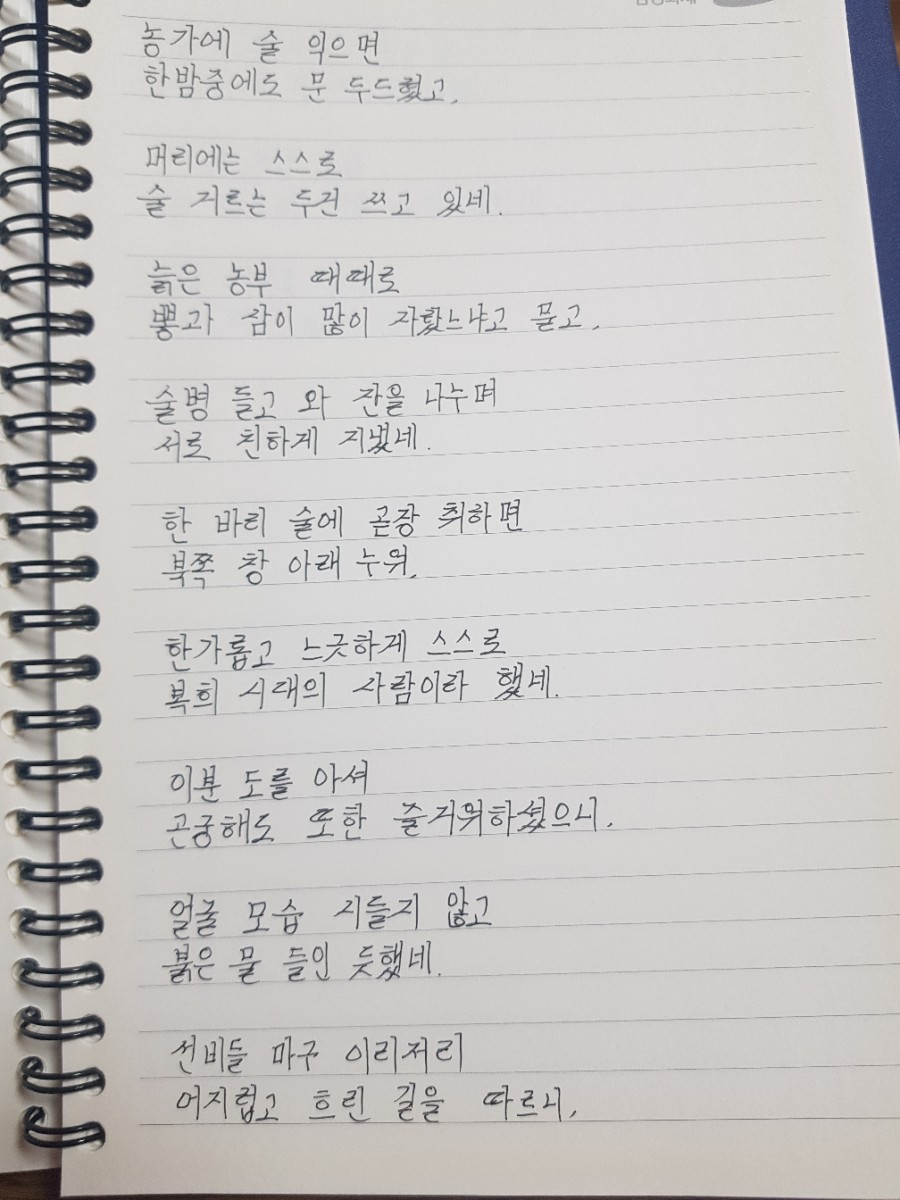 농가에 술 익으면
한밤중에도 문 두드렸고,
머리에는 스스로
술 거르는 두건 쓰고 있네.
늙은 농부 때때로
뽕과 삼이 많이 자랐느냐고 묻고,
술병 들고 와 잔을 나누며
서로 친하게 지냈네.
한 바리 술에 곧장 취하면
북쪽 창 아래 누워,
한가롭고 느긋하게 스스로
복희 시대의 사람이라 했네.
이분 도를 아셔
곤궁해도 또한 즐거워하셨으니,
얼굴 모습 시들지 않고
붉은 물 들인 듯했네.
선비들 마구 이리저리
어지럽고 흐린 길을 따르니,